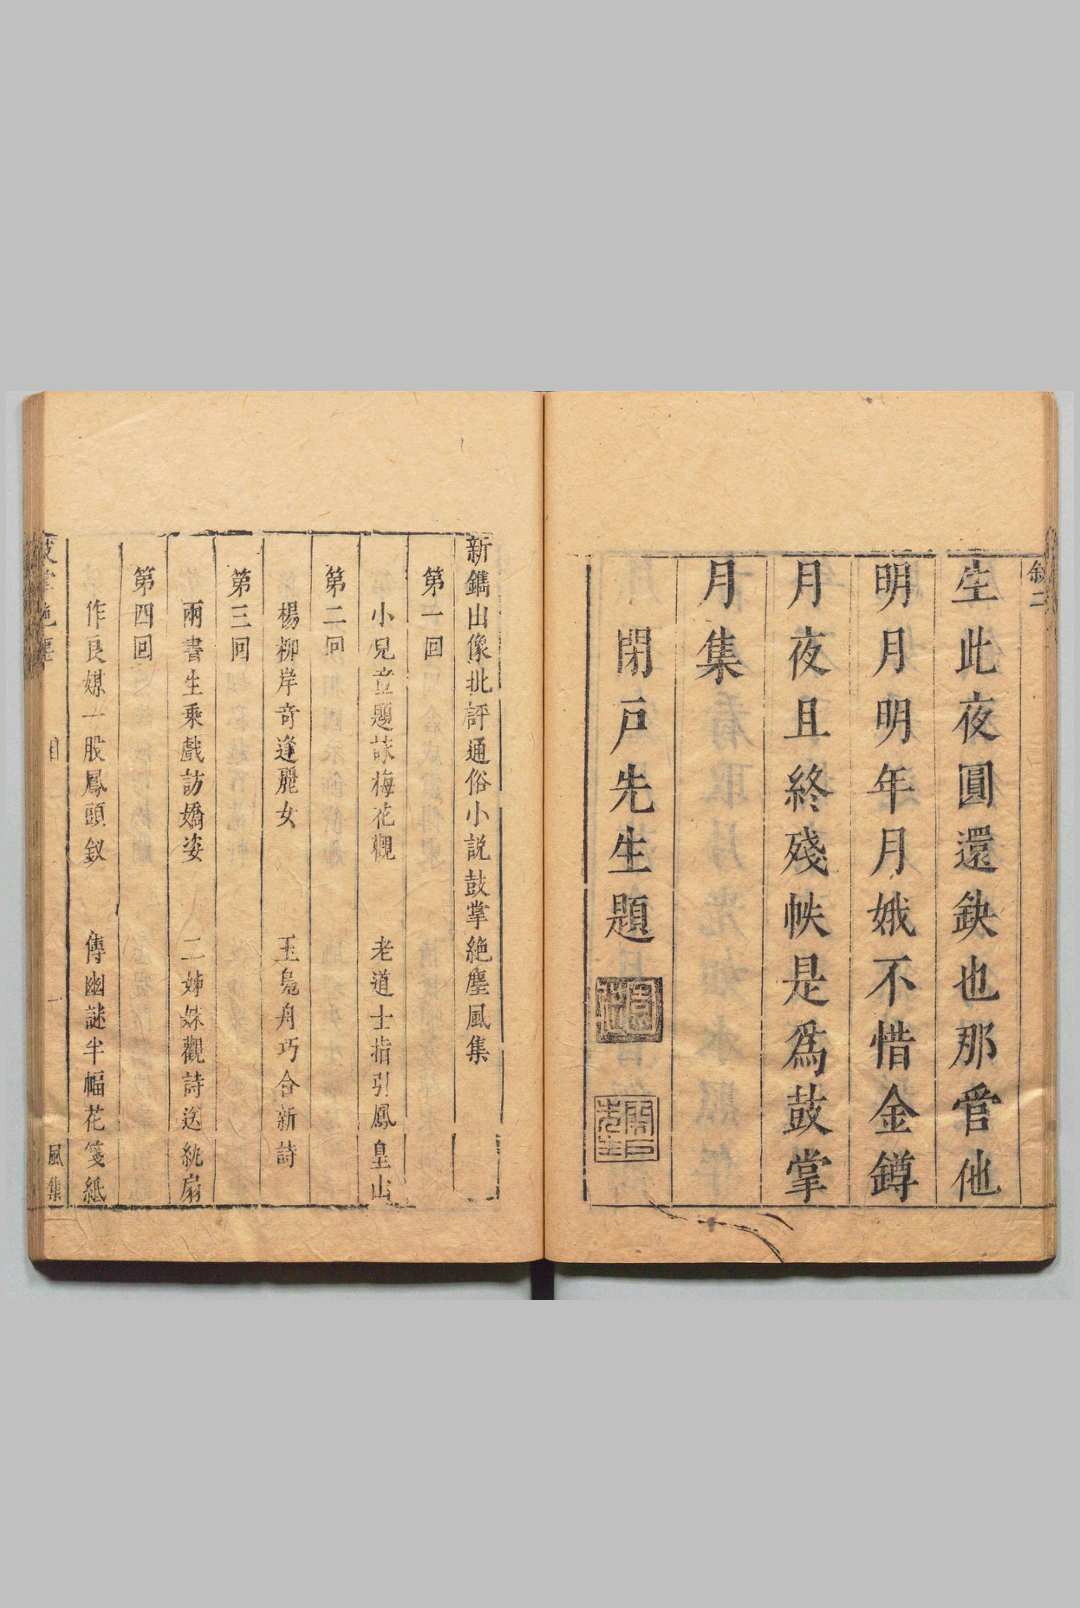 敘二
生此夜圓還缺也那管他
明月明年月娥不惜金鐏
月夜且終殘帙是爲鼓掌
月集
閉戸先生題
新鐫出像批評通俗小説鼓掌絶塵風集
第一回
小兒童題詠梅花觀 老道士指引鳳皇山
第二回
楊柳岸奇逢麗女 玉鳧舟巧合新詩
第三回
兩書生乘戲訪嬌姿 二姊妹觀詩送紈扇
第四回
作良媒一股鳳頭釵 傳幽謎半幅花箋紙
鼓掌絶塵 目 一 風集